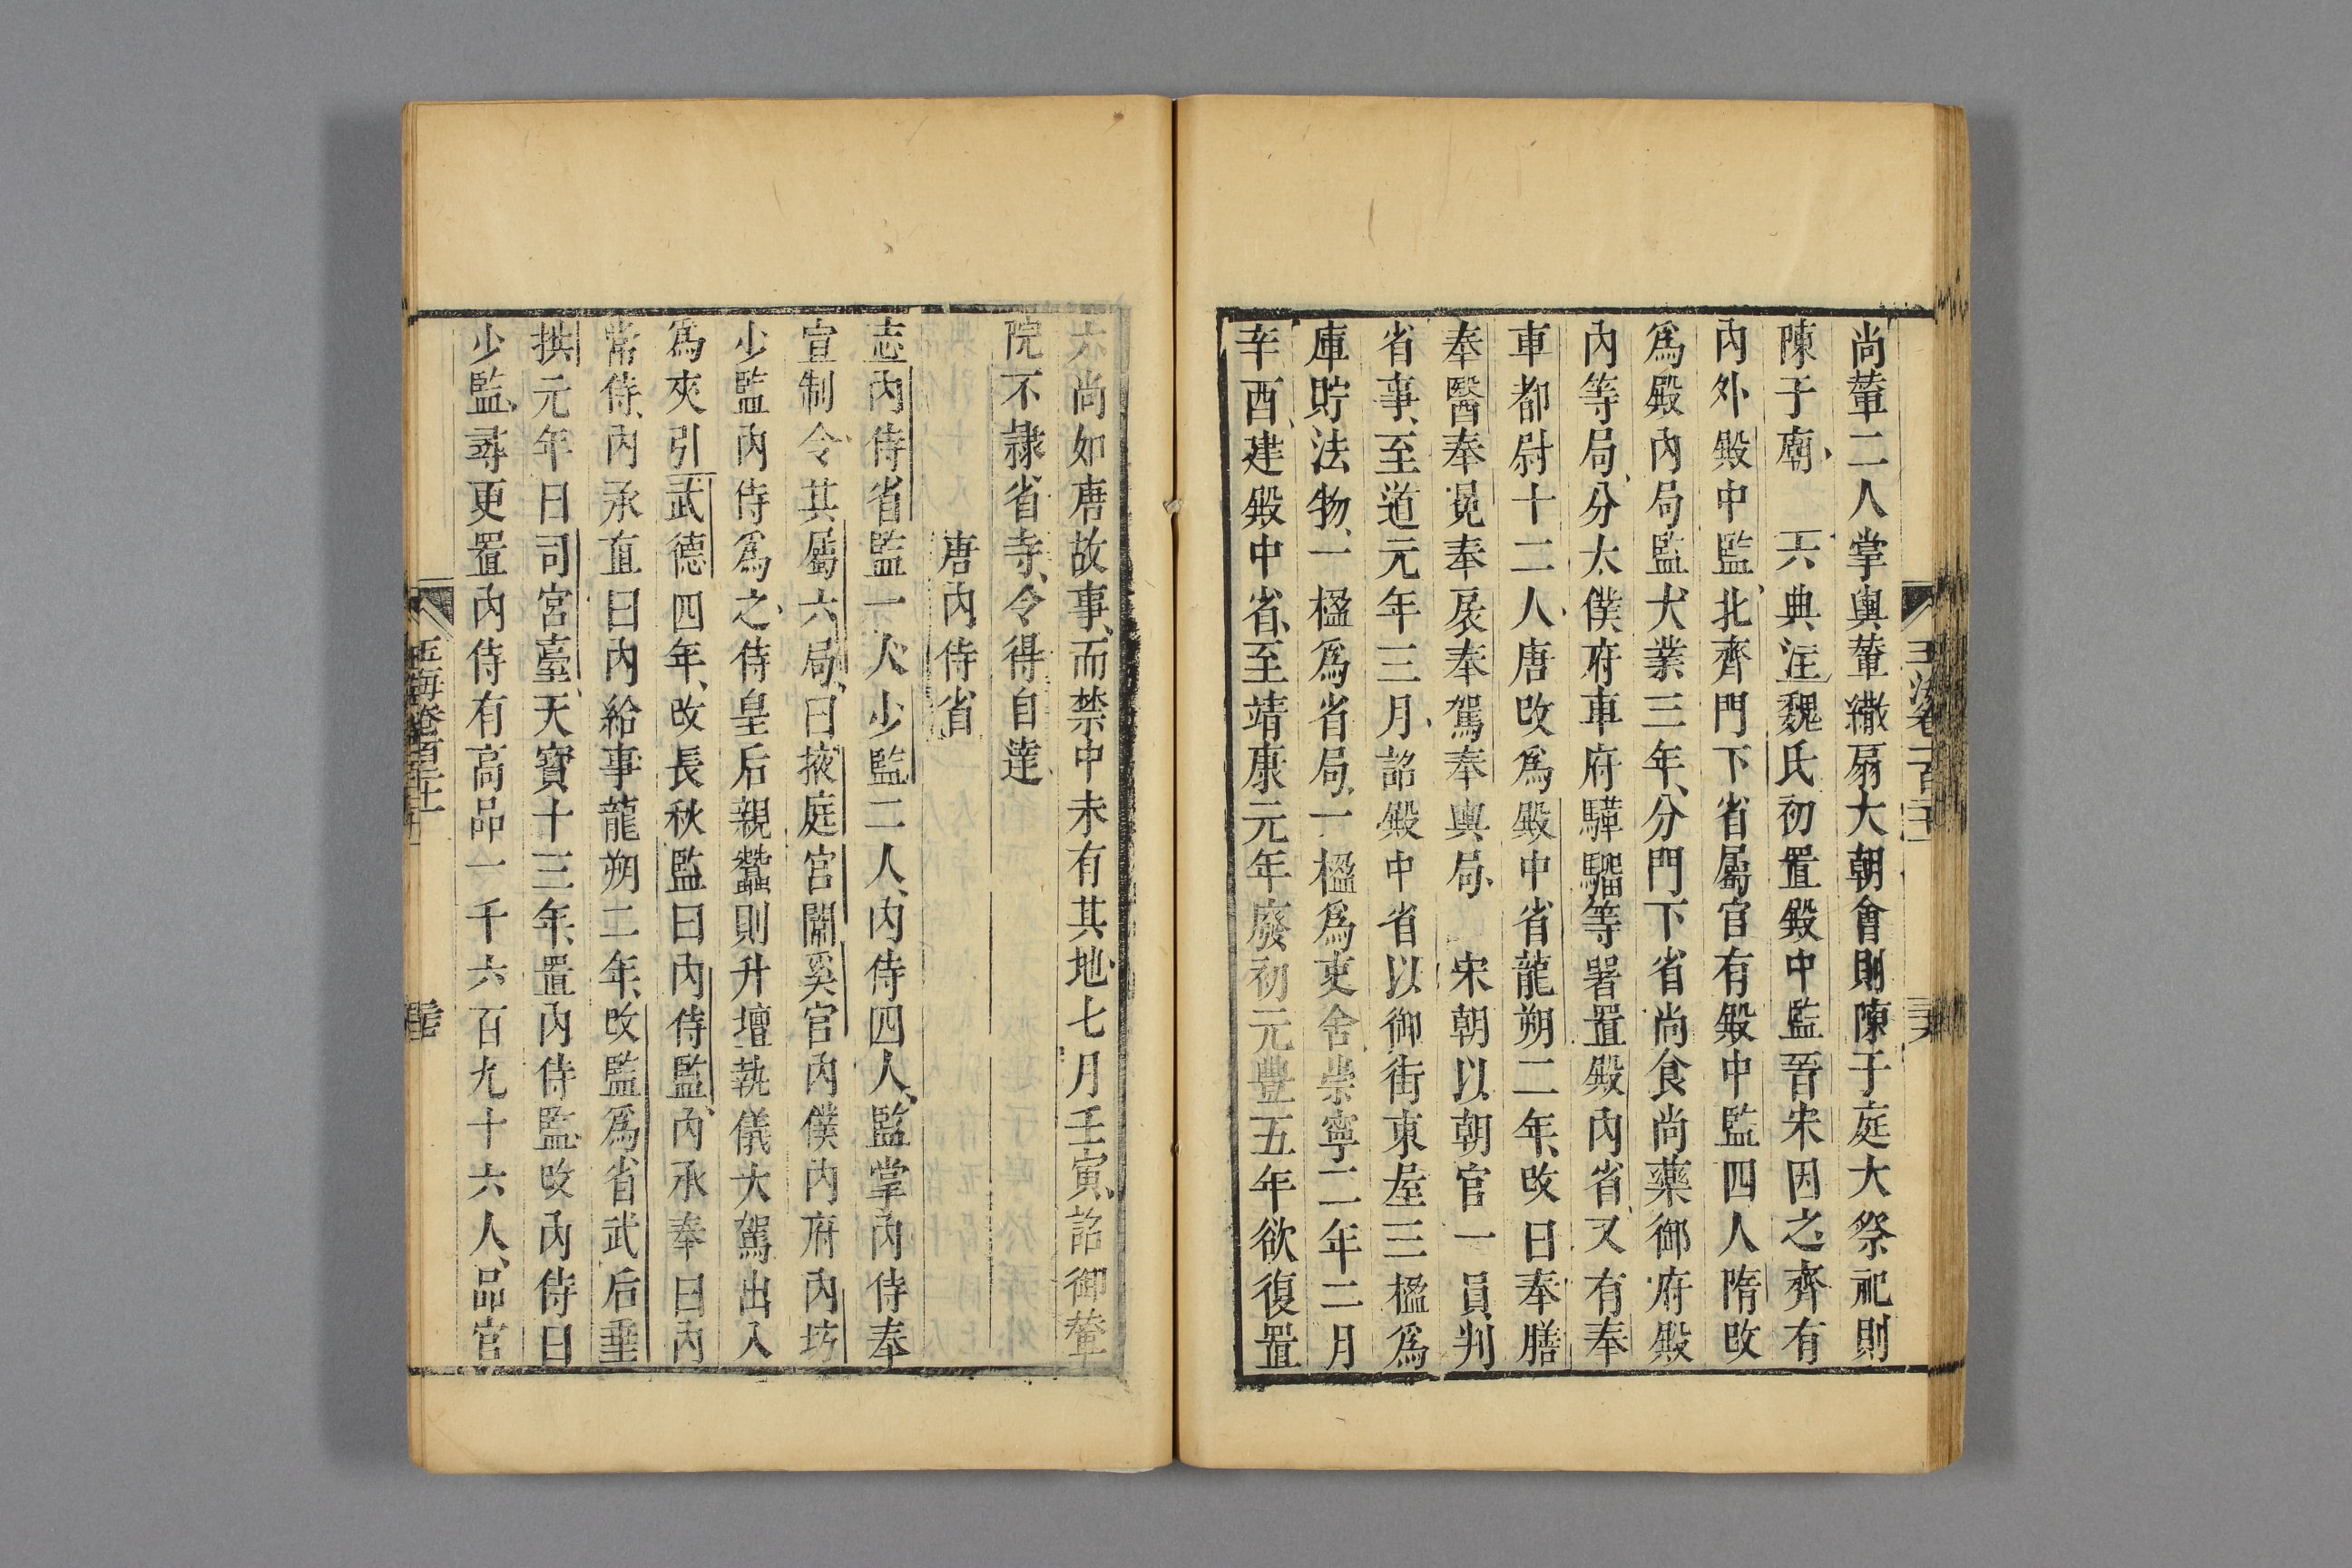 尚輦二人掌輿輦繖扇大朝會則陳于庭大祭祀則
陳于廟 六典注魏氏初置殿中監晉宋因之齊有
內外殿中監北齊門下省屬官有殿中監四人隋改
爲殿內局監大業三年分門下省尚食尚藥御府殿
內等局分太僕府車府驊騮等署置殿內省又有奉
車都尉十二人唐改爲殿中省龍朔二年改曰奉膳
奉醫奉冕奉扆奉駕奉輿局 宋朝以朝官一員判
省事至道元年三月詔殿中省以御街東屋三楹爲
庫貯法物一楹爲省局一楹爲吏舍崇寧二年二月
辛酉建殿中省至靖康元年廢初元豐五年欲復置
六尚如唐故事而禁中未有其地七月壬寅詔御輦
院不隸省寺令得自達
唐內侍省
志內侍省監一人少監二人內侍四人監掌內侍奉
宣制令其屬六局曰掖庭宮闈奚官內僕內府內坊
少監內侍爲之侍皇后親蠶則升壇執儀大駕出入
爲夾引武德四年改長秋監曰內侍監內承奉曰內
常侍內承直曰內給事龍朔二年改監爲省武后垂
拱元年曰司宮臺天寶十三年置內侍監改內侍曰
少監尋更置內侍有高品一千六百九十六人品官
玉海卷百二十